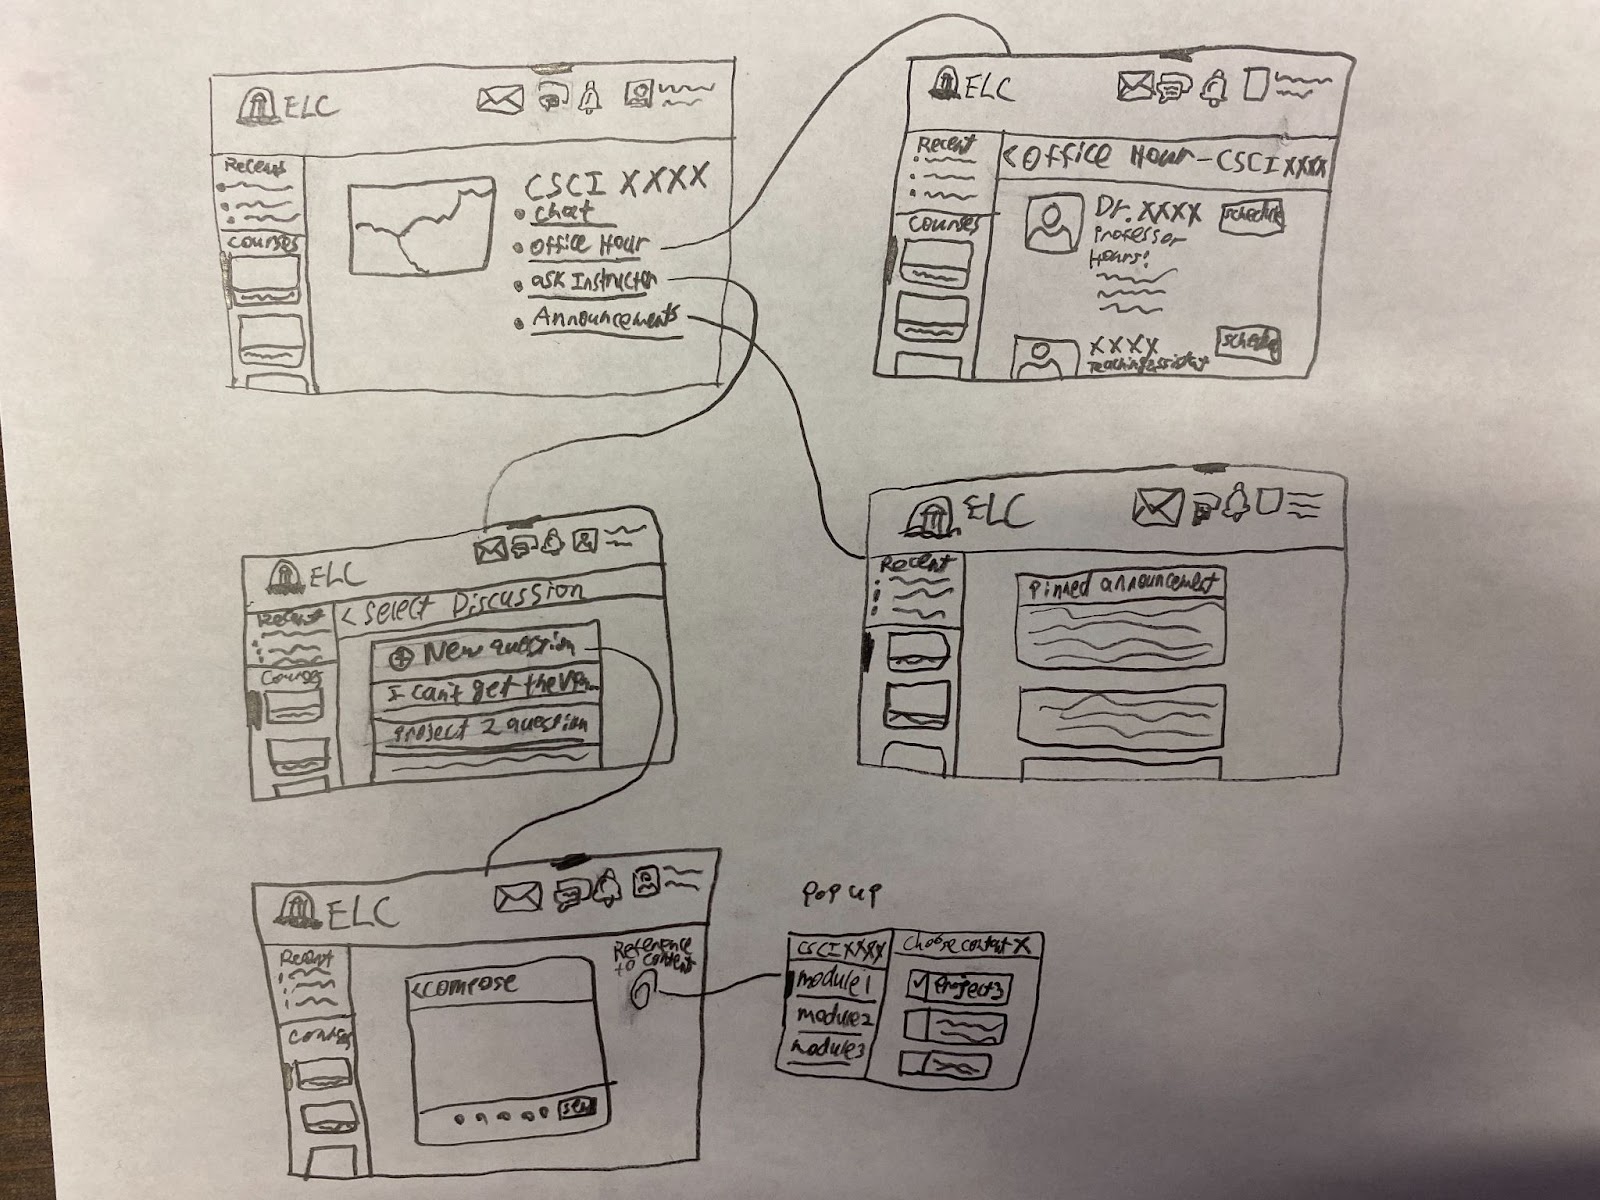 ELC
Recents
Courses
CSCI XXXX
Chat
Office Hour
ask Instructor
Announcements
ELC
Recent
Courses
< Office Hour - CSCI XXXX
Dr. XXXX
Professor
Hours:
schedule
XXXX
Teaching assistant
schedule
ELC
Recent
Courses
< Select Discussion
New question
I can't get the
Project 2 question
ELC
Recent
Pinned announcement
ELC
Recent
Courses
< compose
Send
Reference
to content
Pop up
CSCI XXXX
module 1
module 2
module 3
Choose content X
Project 3